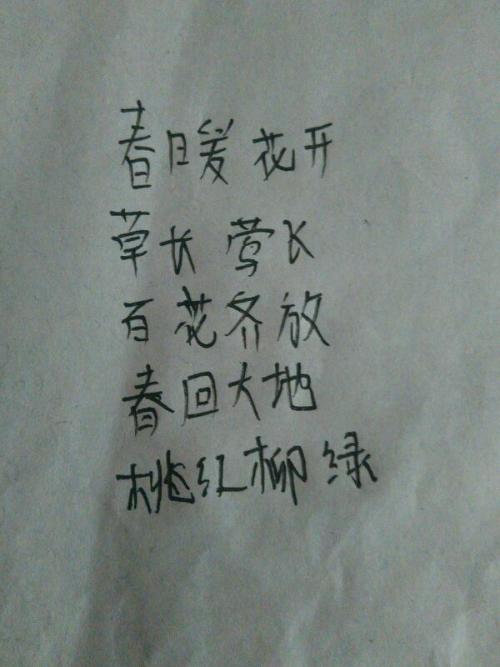 春日暖花开
草长莺
百花齐放
春回大地
桃红柳绿